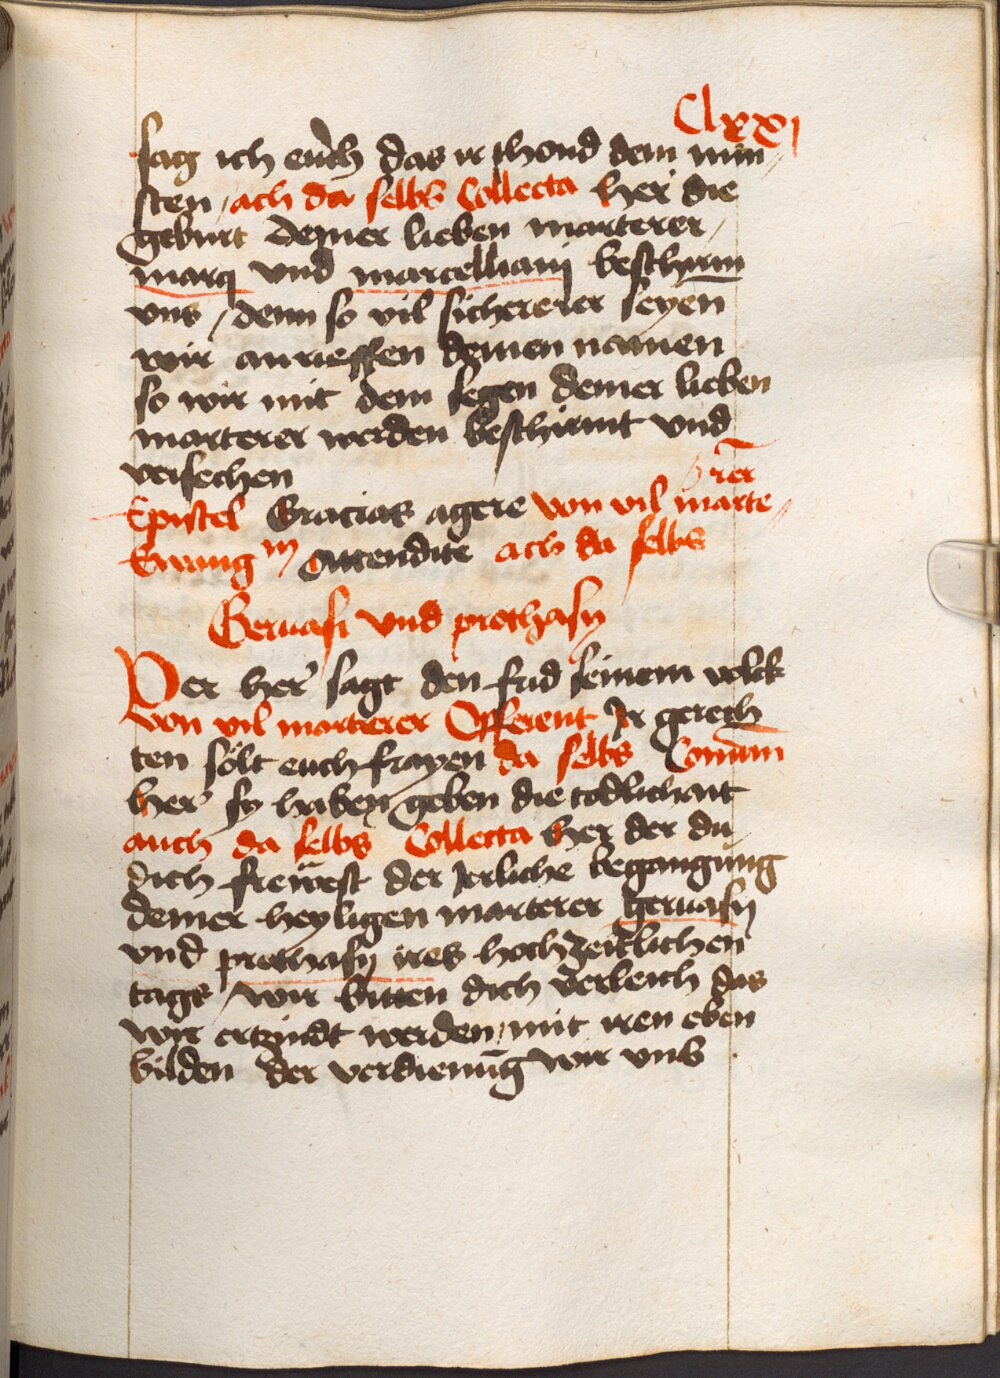 Clxxj
sag ich eüch das ir thond dem min„
sten / ach da selbs Collecta her die
geburt deiner lieben marterer /
marcj und marcelliani beschirm
uns / denn so vil sicherer seyen
wir anrieffen deinen namen
so wir mit dem segen deiner lieben
marterer werden beschirmt und
versechen
Epistel Gracias agere von vil marte„
rer
Ewangm Attendite ach da selbs
Geruasi und prothasy
Der her sagt den frid seinem volck
von vil marterer Offerent Ir gerech
ten sölt euch frayen da selbs Comum̄
her sy haben geben die todlichait
auch da selbs Collecta Her der du
dich freẅest der Jerliche begangung
deiner heyligen marterer geruasy
und prothasy ires hochzeitlichen
tags / wir bitten dich verleich das
wir ertzindt werden mit iren eben
bilden der verdienūg wir uns